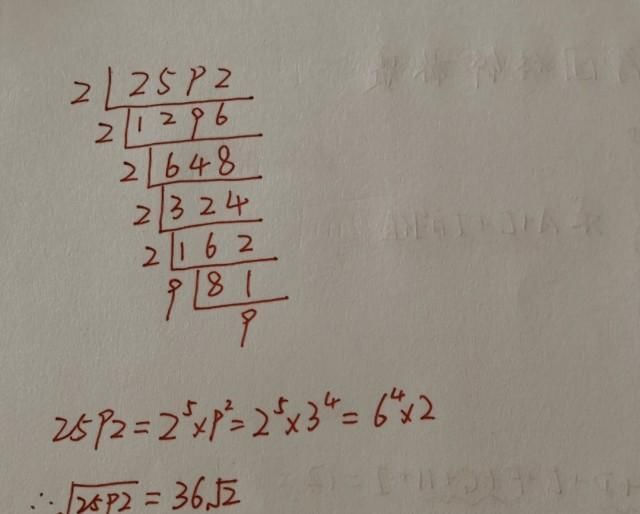 2 2592
2 1296
2 648
2 324
2 162
9 81
9
2592 = 2⁵×9² = 2⁵×3⁴ = 6⁴×2
∴ √2592 = 36√2